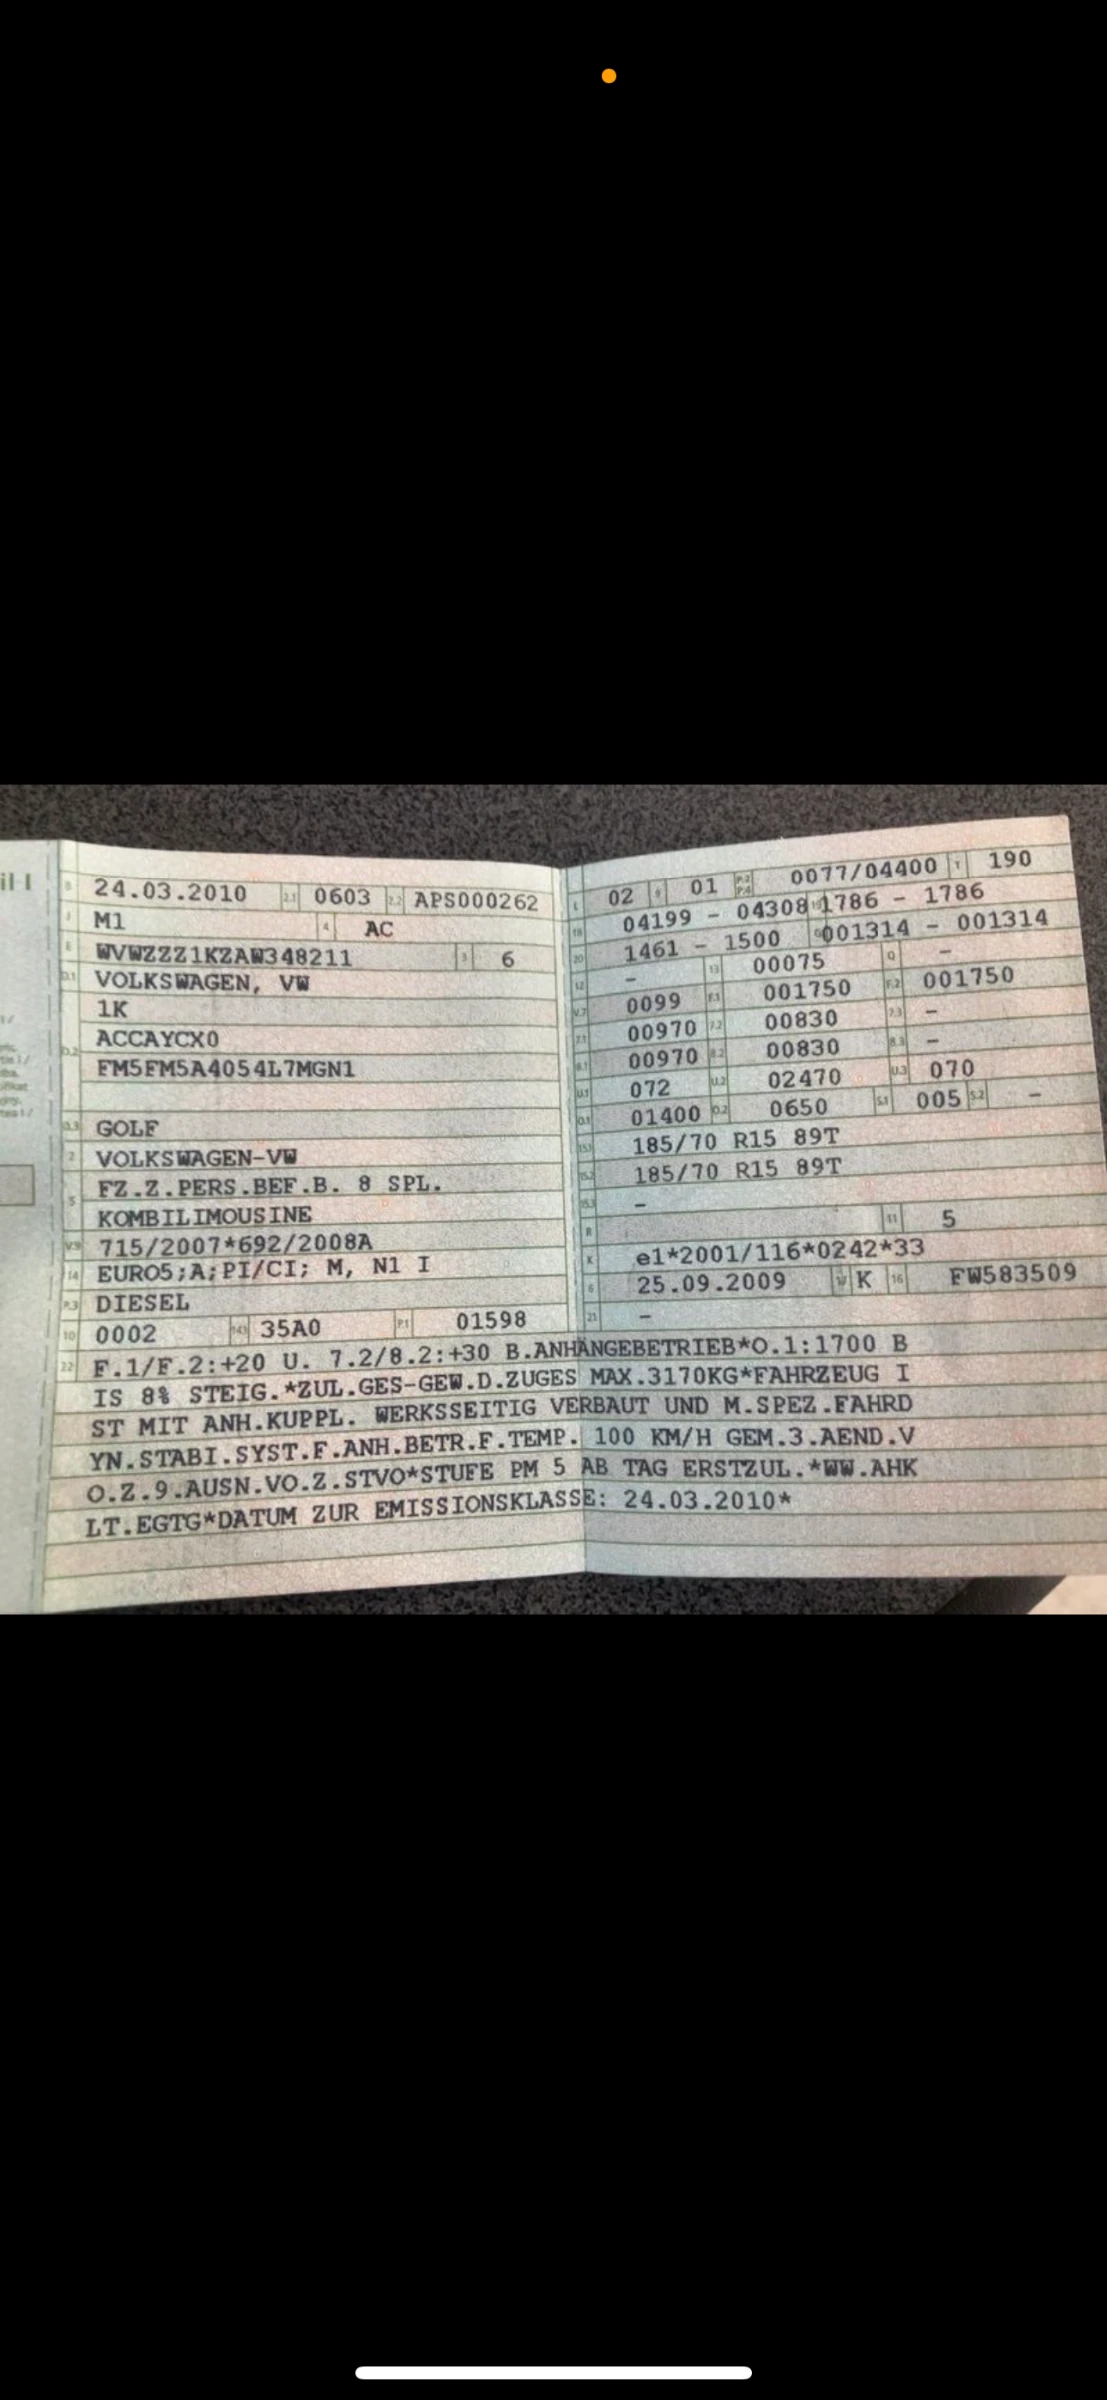 il I
B 24.03.2010 2.1 0603 2.2 APS000262
J M1 4 AC
E WVWZZZ1KZAW348211 3 6
D.1 VOLKSWAGEN, VW
1K
D.2 ACCAYCX0
FM5FM5A4054L7MGN1
D.3 GOLF
2 VOLKSWAGEN-VW
5 FZ.Z.PERS.BEF.B. 8 SPL.
KOMBILIMOUSINE
V.9 715/2007*692/2008A
14 EURO5;A;PI/CI; M, N1 I
P.3 DIESEL
10 0002 14.1 35A0 P.1 01598
L 02 9 01 P.2 P.4 0077/04400 T 190
18 04199 - 04308 19 1786 - 1786
20 1461 - 1500 G 001314 - 001314
12 - 13 00075 Q -
V.7 0099 F.1 001750 F.2 001750
7.1 00970 7.2 00830 7.3 -
8.1 00970 8.2 00830 8.3 -
U.1 072 U.2 02470 U.3 070
O.1 01400 O.2 0650 S.1 005 S.2 -
15.1 185/70 R15 89T
15.2 185/70 R15 89T
15.3 -
R 11 5
K e1*2001/116*0242*33
6 25.09.2009 17 K 16 FW583509
21 -
22 F.1/F.2:+20 U. 7.2/8.2:+30 B.ANHÄNGEBETRIEB*O.1:1700 B
IS 8% STEIG.*ZUL.GES-GEW.D.ZUGES MAX.3170KG*FAHRZEUG I
ST MIT ANH.KUPPL. WERKSSEITIG VERBAUT UND M.SPEZ.FAHRD
YN.STABI.SYST.F.ANH.BETR.F.TEMP. 100 KM/H GEM.3.AEND.V
O.Z.9.AUSN.VO.Z.STVO*STUFE PM 5 AB TAG ERSTZUL.*WW.AHK
LT.EGTG*DATUM ZUR EMISSIONSKLASSE: 24.03.2010*